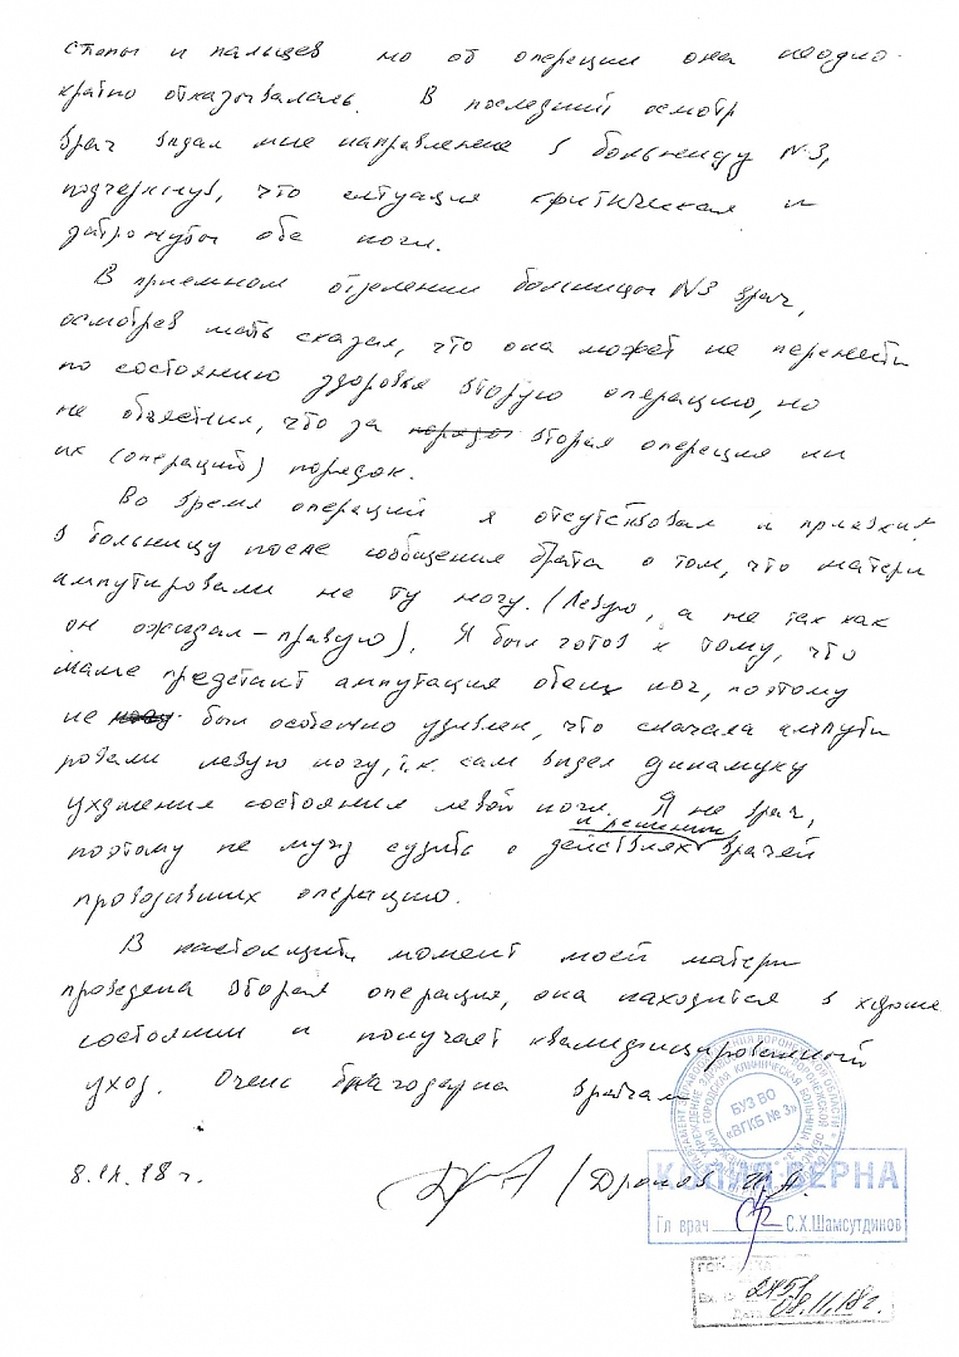 стопы и пальцев но от операции она неодно-
кратно отказывалась. В последний осмотр
врач выдал мне направление в больницу N3,
подчеркнув, что ситуация критическая и
затронуты обе ноги.
В приемном отделении больницы N3 врач,
осмотрев мать сказал, что она может не перенести
по состоянию здоровья вторую операцию, но
не объяснил, что за вторая операция и
их (операций) порядок.
Во время операций я отсутствовал и приехал
в больницу после сообщения брата о том, что матери
ампутировали не ту ногу. (Левую, а не так как
он ожидал - правую). Я был готов к тому, что
маме предстоит ампутация обеих ног, поэтому
не был особенно удивлен, что сначала ампути
ровали левую ногу, т.к. сам видел динамику
ухдшения состояния левой ноги. Я не врач,
и решении
поэтому не могу судить о действиях врачей
проводивших операцию.
В настоящить момент моей матери
проведена вторая операция, она находится в хороше
состоянии и получает квалифицированный
уход. Очень благодарна врачам
8.11.18 г. / Дронов И.А.
ДЕПАРТАМЕНТ ЗДРАВООХРАНЕНИЯ ВОРОНЕЖСКОЙ ОБЛАСТИ
БУЗ ВО
«ВГКБ № 3»
КОПИЯ ВЕРНА
Гл врач С.Х.Шамсутдинов
2451
08.11.18г.